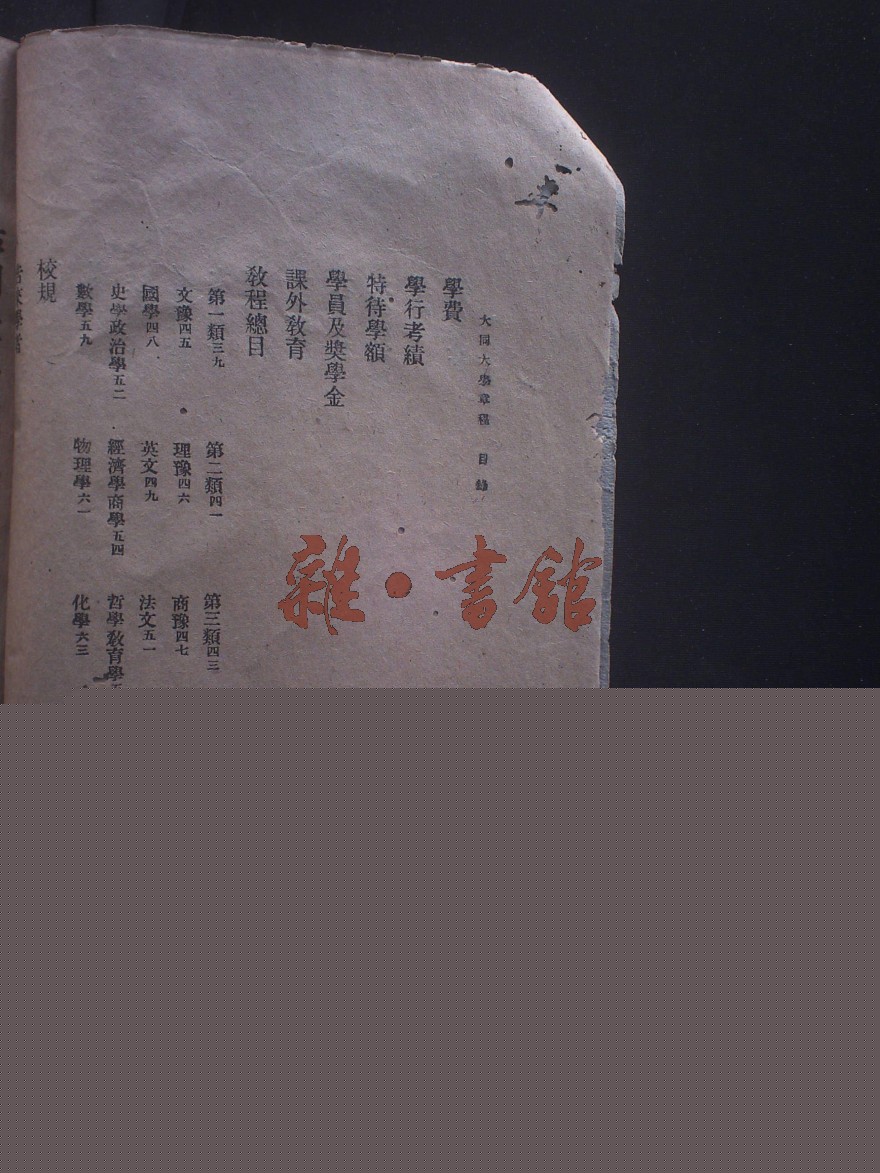 大同大學章程 目錄
學費
學行考績
特待學額
學員及獎學金
課外教育
教程總目
第一類三九 第二類四一 第三類四三
文豫四五 理豫四六 商豫四七
國學四八 英文四九 法文五一
史學政治學五二 經濟學商學五四 哲學教育學
數學五九 物理學六一 化學六三
校規
雜·書館